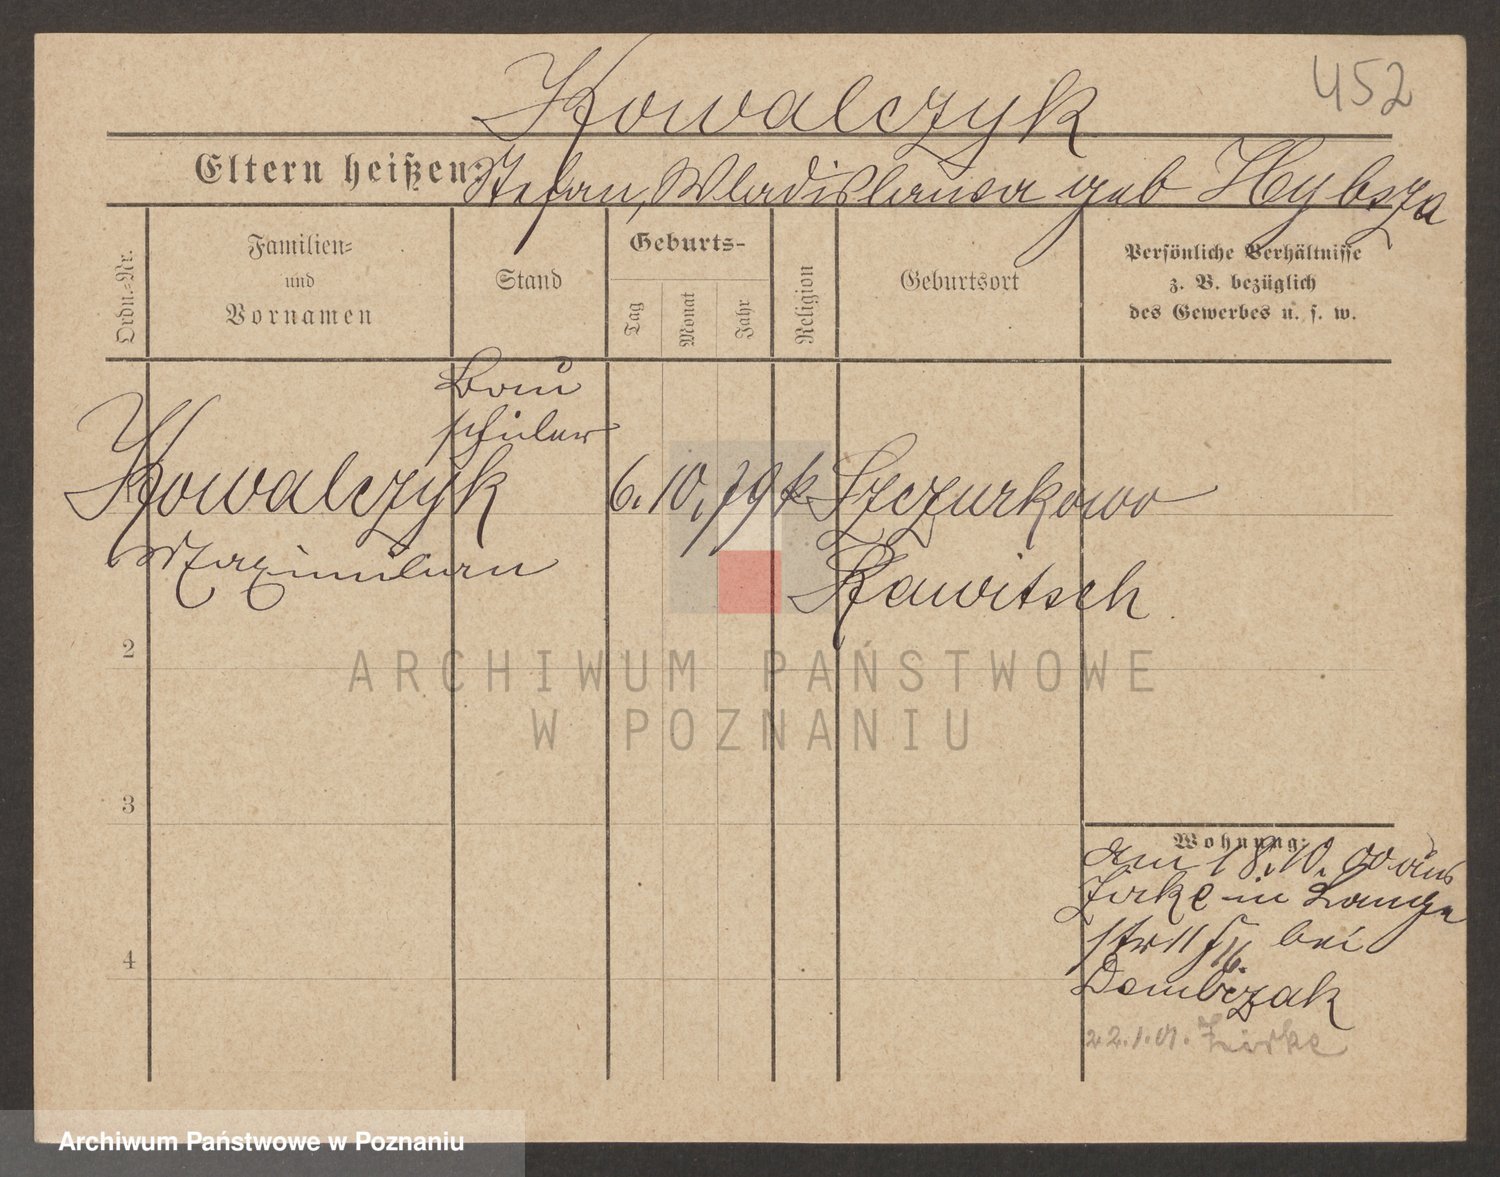 Kowalczyk
452
Eltern heißen: Stefan, Wladislawa geb Hybsza
Ordn.-Nr.
Familien- und Vornamen
Stand
Geburts-
Tag
Monat
Jahr
Religion
Geburtsort
Persönliche Verhältnisse
z. B. bezüglich
des Gewerbes u. s. w.
Bau
schüler
1 Kowalczyk 6. 10. 79 k Szczurkowo
Maximilian
Rawitsch
2
3
4
Wohnung:
Am 18.10.00 aus
Zirke in Lange
str 11 bei
Dombczak
22.1.01. Zirke
ARCHIWUM PAŃSTWOWE
W POZNANIU
Archiwum Państwowe w Poznaniu